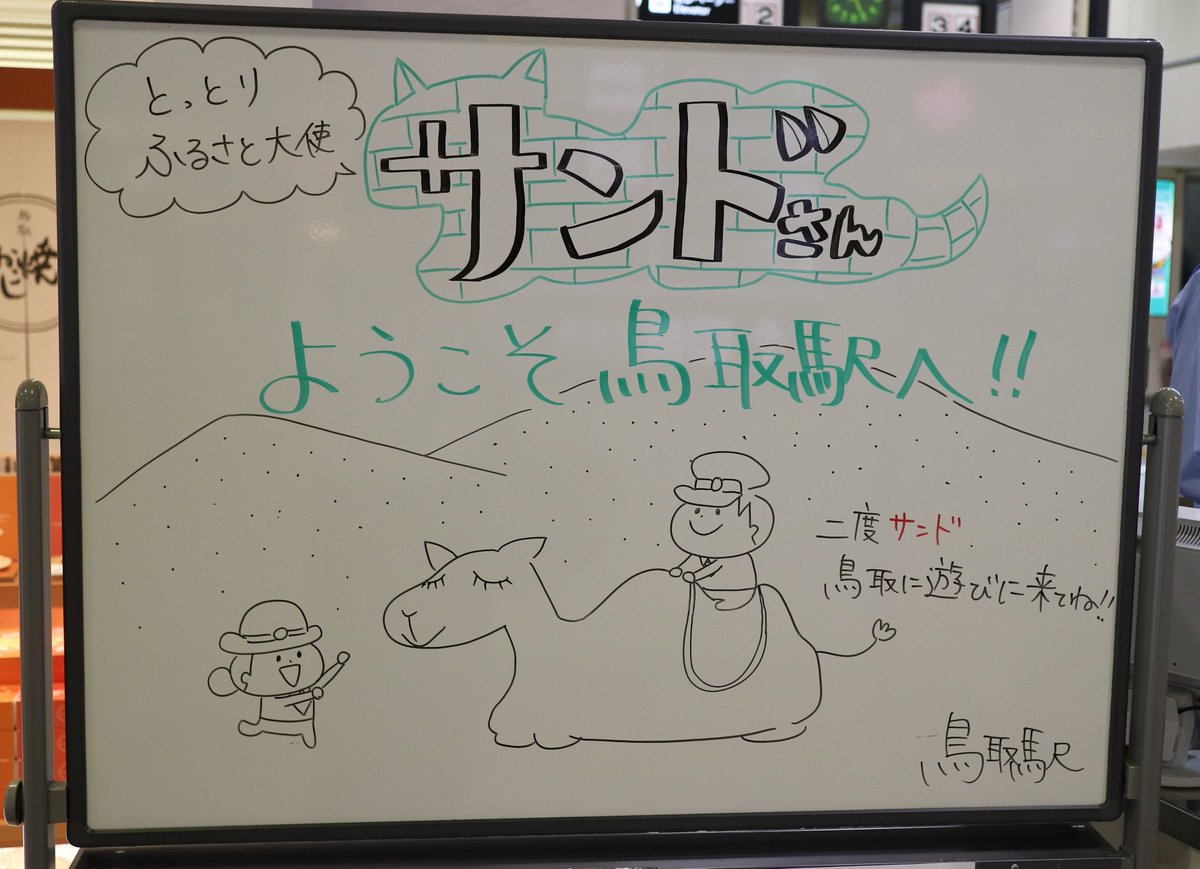 とっとり
ふるさと大使
サンドさん
ようこそ鳥取駅へ!!
二度サンド
鳥取に遊びに来てね!!
鳥取駅
2
3 4
Elevator
鳥取
焼